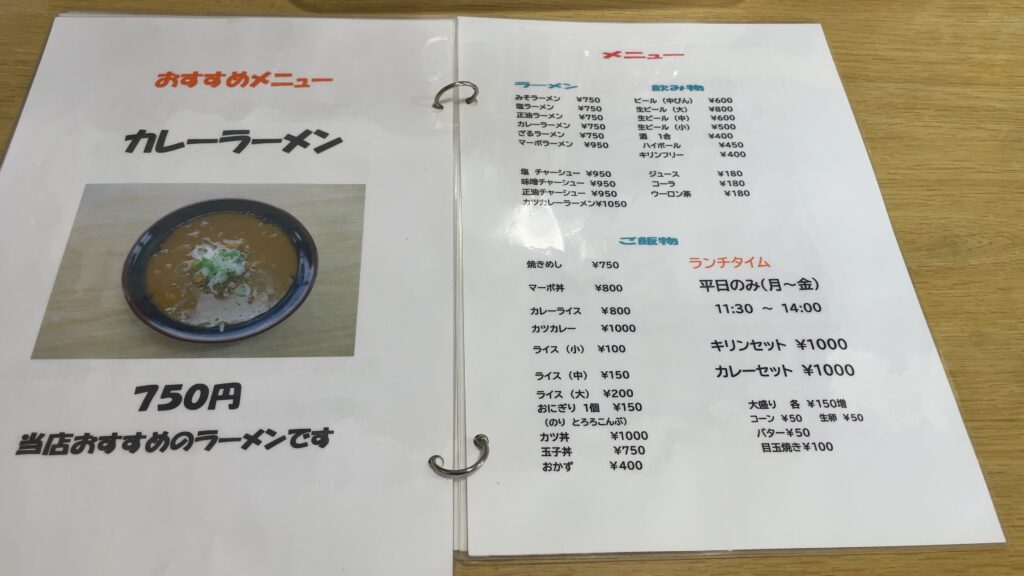 おすすめメニュー
カレーラーメン
750円
当店おすすめのラーメンです
メニュー
ラーメン
みそラーメン ¥750
塩ラーメン ¥750
正油ラーメン ¥750
カレーラーメン ¥750
ざるラーメン ¥750
マーボラーメン ¥950
塩 チャーシュー ¥950
味噌チャーシュー ¥950
正油チャーシュー ¥950
カツカレーラーメン¥1050
飲み物
ビール（中びん） ¥600
生ビール（大） ¥800
生ビール（中） ¥600
生ビール（小） ¥500
酒 1合 ¥400
ハイボール ¥450
キリンフリー ¥400
ジュース ¥180
コーラ ¥180
ウーロン茶 ¥180
ご飯物
焼きめし ¥750
マーボ丼 ¥800
カレーライス ¥800
カツカレー ¥1000
ライス（小） ¥100
ライス（中） ¥150
ライス（大） ¥200
おにぎり 1個 ¥150
（のり とろろこんぶ）
カツ丼 ¥1000
玉子丼 ¥750
おかず ¥400
ランチタイム
平日のみ(月～金)
11:30 ～ 14:00
キリンセット ¥1000
カレーセット ¥1000
大盛り 各 ¥150増
コーン ¥50 生卵 ¥50
バター¥50
目玉焼き¥100